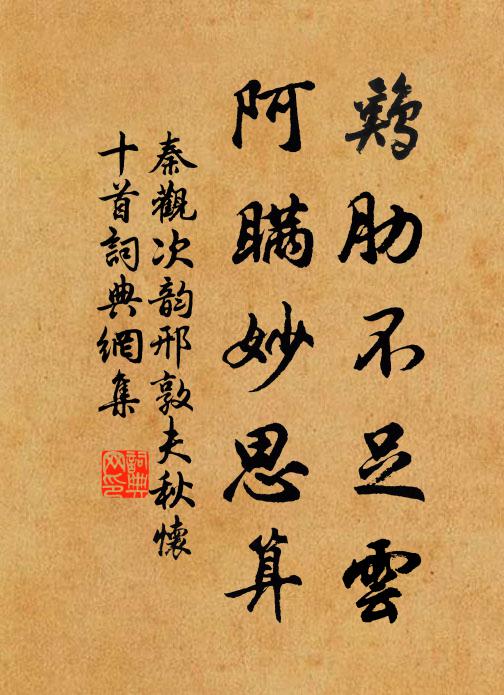 鷄肋不足雲
阿瞞妙思算
秦觀次韵邢敦夫秋懷
十首詞典網集
詞典網印